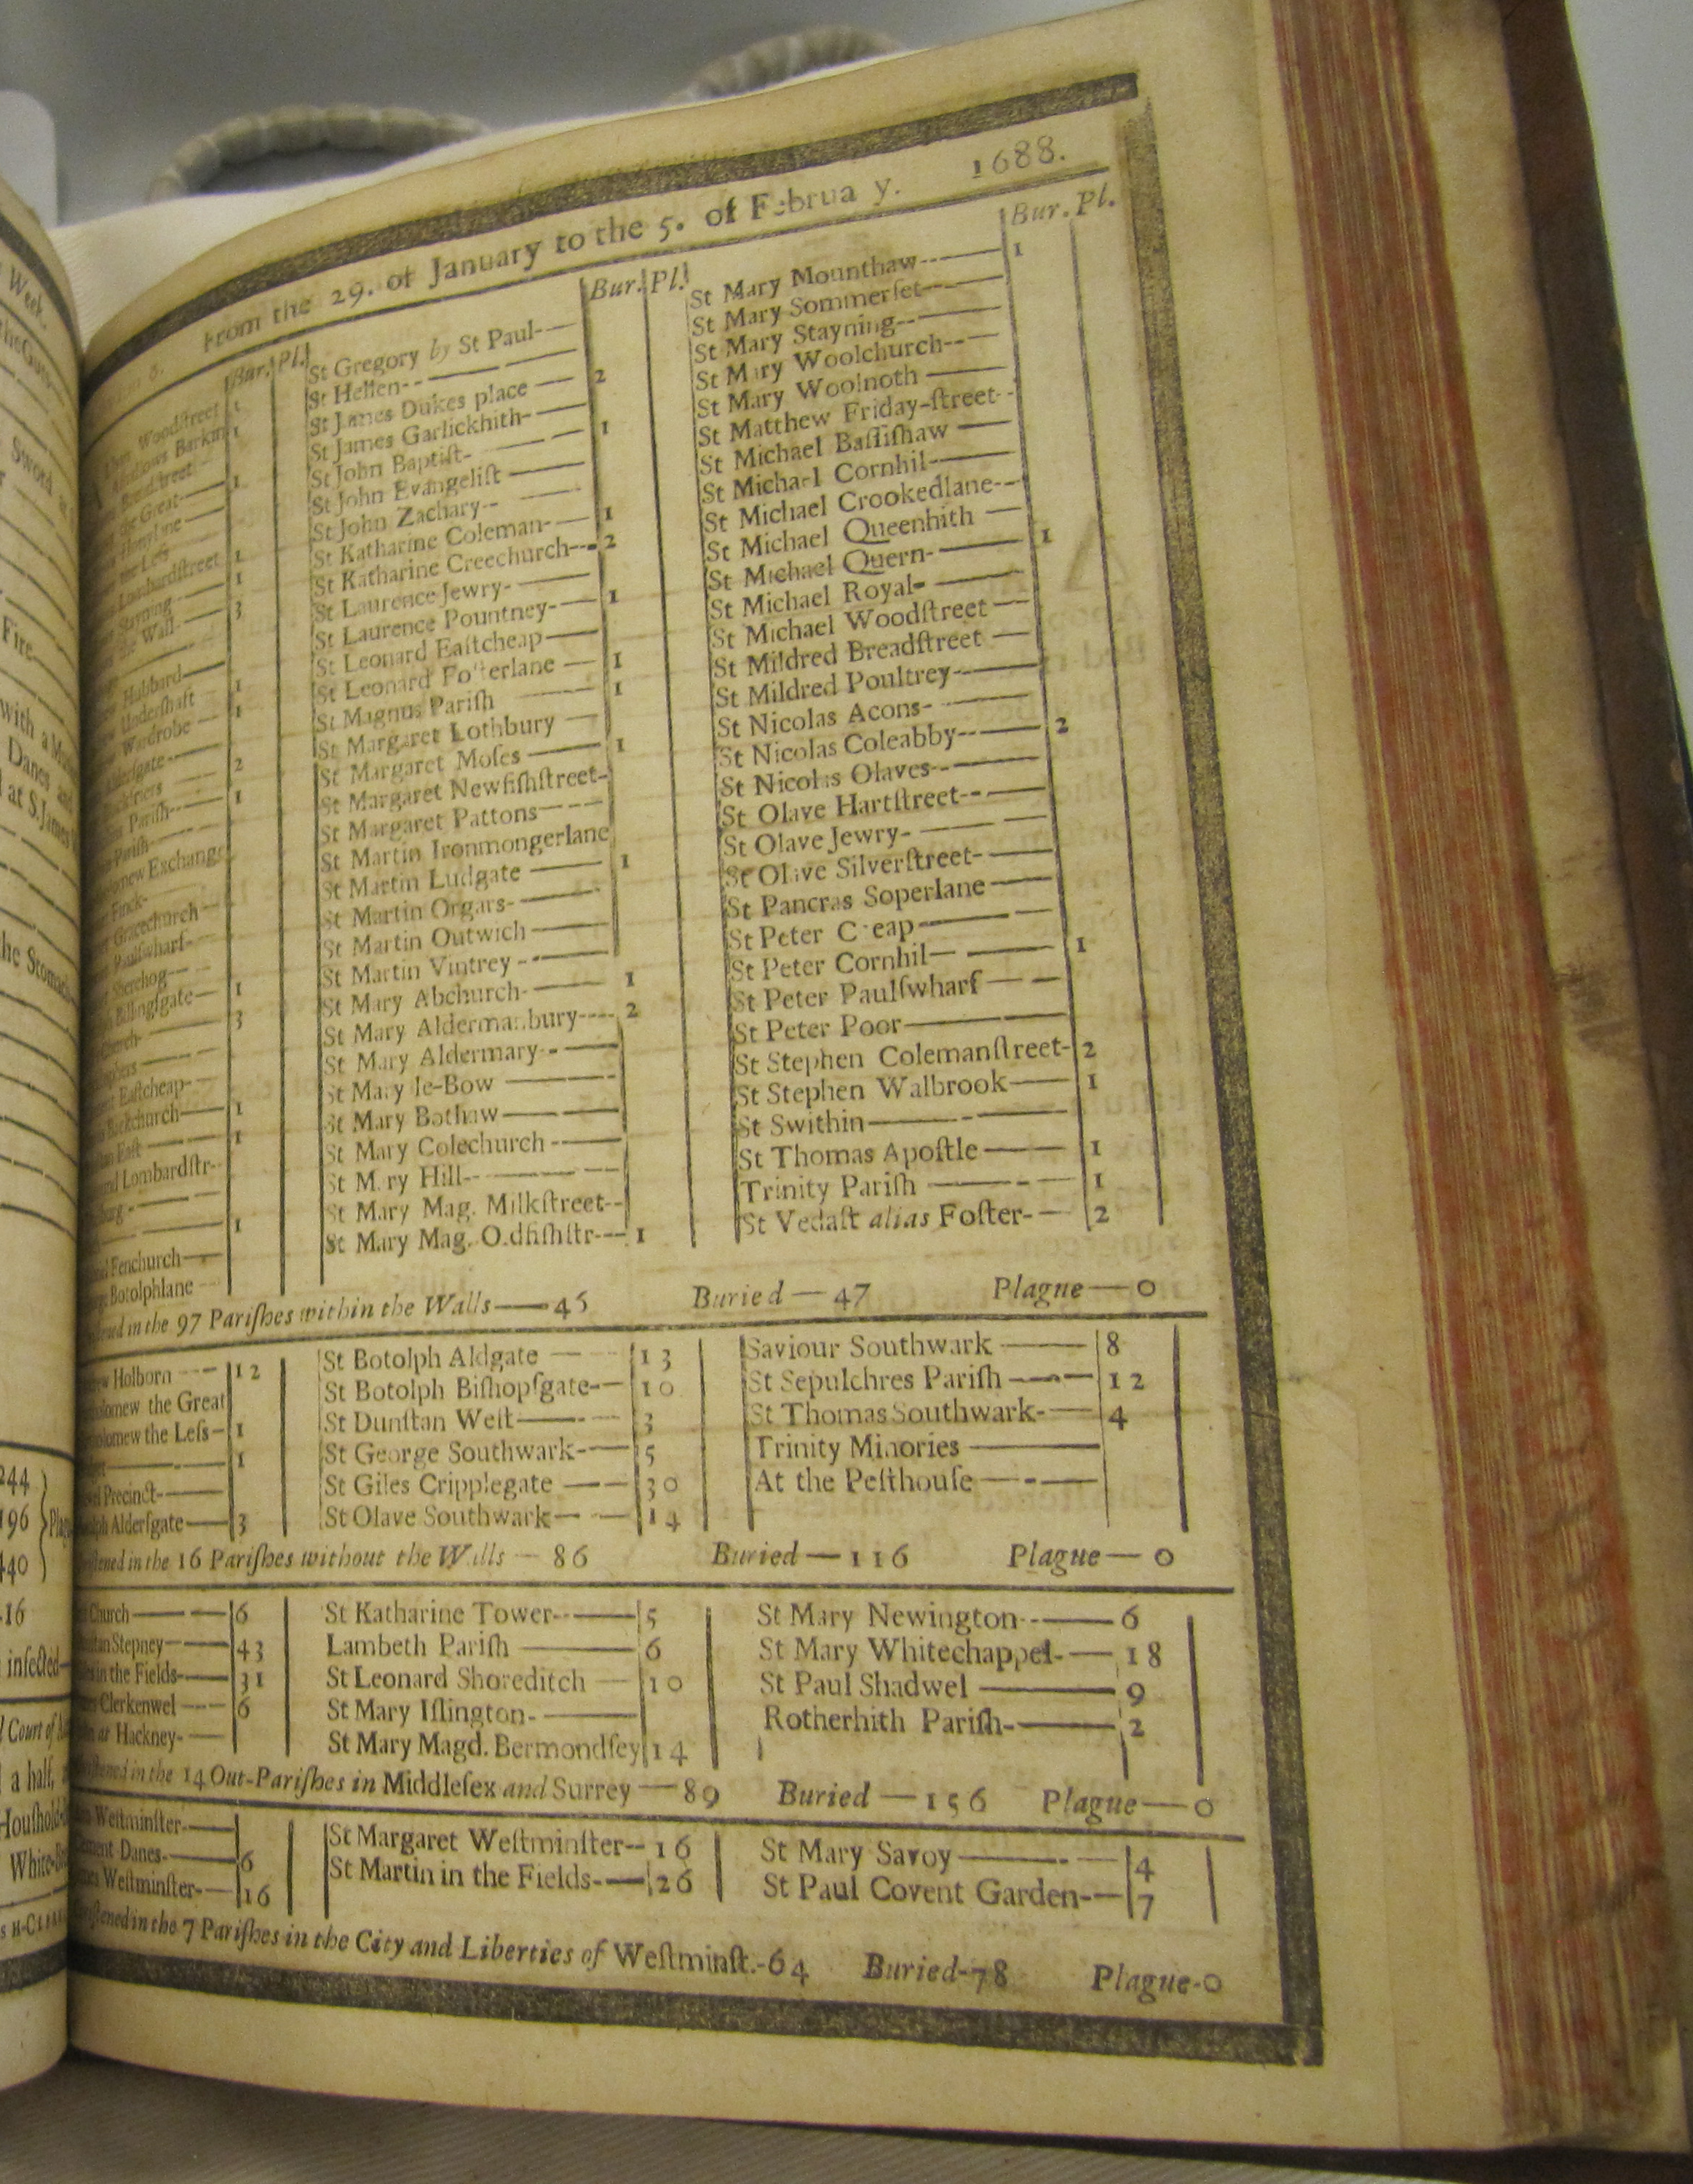 Week.
Sword
Fire
with a
Danes and
at S. James
the Stomach
244
196
440
16
infected
Court of
a half,
White
From the 29. of January to the 5. of Februa y. 1688.
Bur. Pl.
Woodſtreet 1
Barkin 1
Breadſtreet
the Great 1
Honylane
the Leſs
Lombardſtreet 1
Stayning 1
the Wall 3
Hubbard
Underſhaft 1
Wardrobe 1
Alderſgate
2
Pariſh 1
Pariſh
new Exchange
Finck
Gracechurch
Paulſwharf
Sherehog
Billingſgate 1
church 3
Eaſtcheap
Backchurch 1
Eaſt 1
Lombardſtr-
1
Fenchurch
Botolphlane
Bur. Pl.
St Gregory by St Paul
St Hellen
St James Dukes place 2
St James Garlickhith
St John Baptiſt 1
St John Evangeliſt
St John Zachary
St Katharine Coleman 1
St Katharine Creechurch 2
St Laurence Jewry
St Laurence Pountney 1
St Leonard Eaſtcheap
St Leonard Fo terlane 1
St Magnus Pariſh 1
St Margaret Lothbury
St Margaret Moſes 1
St Margaret Newfiſhſtreet
St Margaret Pattons
St Martin Ironmongerlane
St Martin Ludgate 1
St Martin Orgars
St Martin Outwich
St Martin Vintrey
St Mary Abchurch 1
St Mary Aldermanbury 2
St Mary Aldermary
St Mary le-Bow
St Mary Bothaw
St Mary Colechurch
St M ry Hill
St Mary Mag. Milkſtreet
St Mary Mag. O.dfiſhſtr 1
Bur. Pl.
St Mary Mounthaw 1
St Mary Sommerſet
St Mary Stayning
St Mary Woolchurch
St Mary Woolnoth
St Matthew Friday-ſtreet
St Michael Baſſiſhaw
St Michael Cornhil
St Michael Crookedlane
St Michael Queenhith
St Michael Quern 1
St Michael Royal
St Michael Woodſtreet
St Mildred Breadſtreet
St Mildred Poultrey
St Nicolas Acons
St Nicolas Coleabby 2
St Nicolas Olaves
St Olave Hartſtreet
St Olave Jewry
St Olave Silverſtreet
St Pancras Soperlane
St Peter C eap
St Peter Cornhil 1
St Peter Paulſwharf
St Peter Poor
St Stephen Colemanſtreet 2
St Stephen Walbrook 1
St Swithin
St Thomas Apoſtle 1
Trinity Pariſh 1
St Vedaſt alias Foſter 2
in the 97 Pariſhes within the Walls — 45 Buried — 47 Plague — 0
Holborn 12
the Great
the Leſs 1
1
Precinct
Alderſgate 3
St Botolph Aldgate 13
St Botolph Biſhopſgate 10
St Dunſtan Weſt 3
St George Southwark 5
St Giles Cripplegate 30
St Olave Southwark 14
Saviour Southwark 8
St Sepulchres Pariſh 12
St Thomas Southwark 4
Trinity Minories
At the Peſthouſe
in the 16 Pariſhes without the Walls — 86 Buried — 116 Plague — 0
Church 6
Stepney 43
in the Fields 31
Clerkenwel 6
Hackney
St Katharine Tower 5
Lambeth Pariſh 6
St Leonard Shoreditch 10
St Mary Iſlington
St Mary Magd. Bermondſey 14
St Mary Newington 6
St Mary Whitechappel 18
St Paul Shadwel 9
Rotherhith Pariſh 2
in the 14 Out-Pariſhes in Middleſex and Surrey — 89 Buried — 156 Plague — 0
Weſtminſter
Danes 6
Weſtminſter 16
St Margaret Weſtminſter 16
St Martin in the Fields 26
St Mary Savoy 4
St Paul Covent Garden 7
in the 7 Pariſhes in the City and Liberties of Weſtminſt.-64 Buried-78 Plague-0